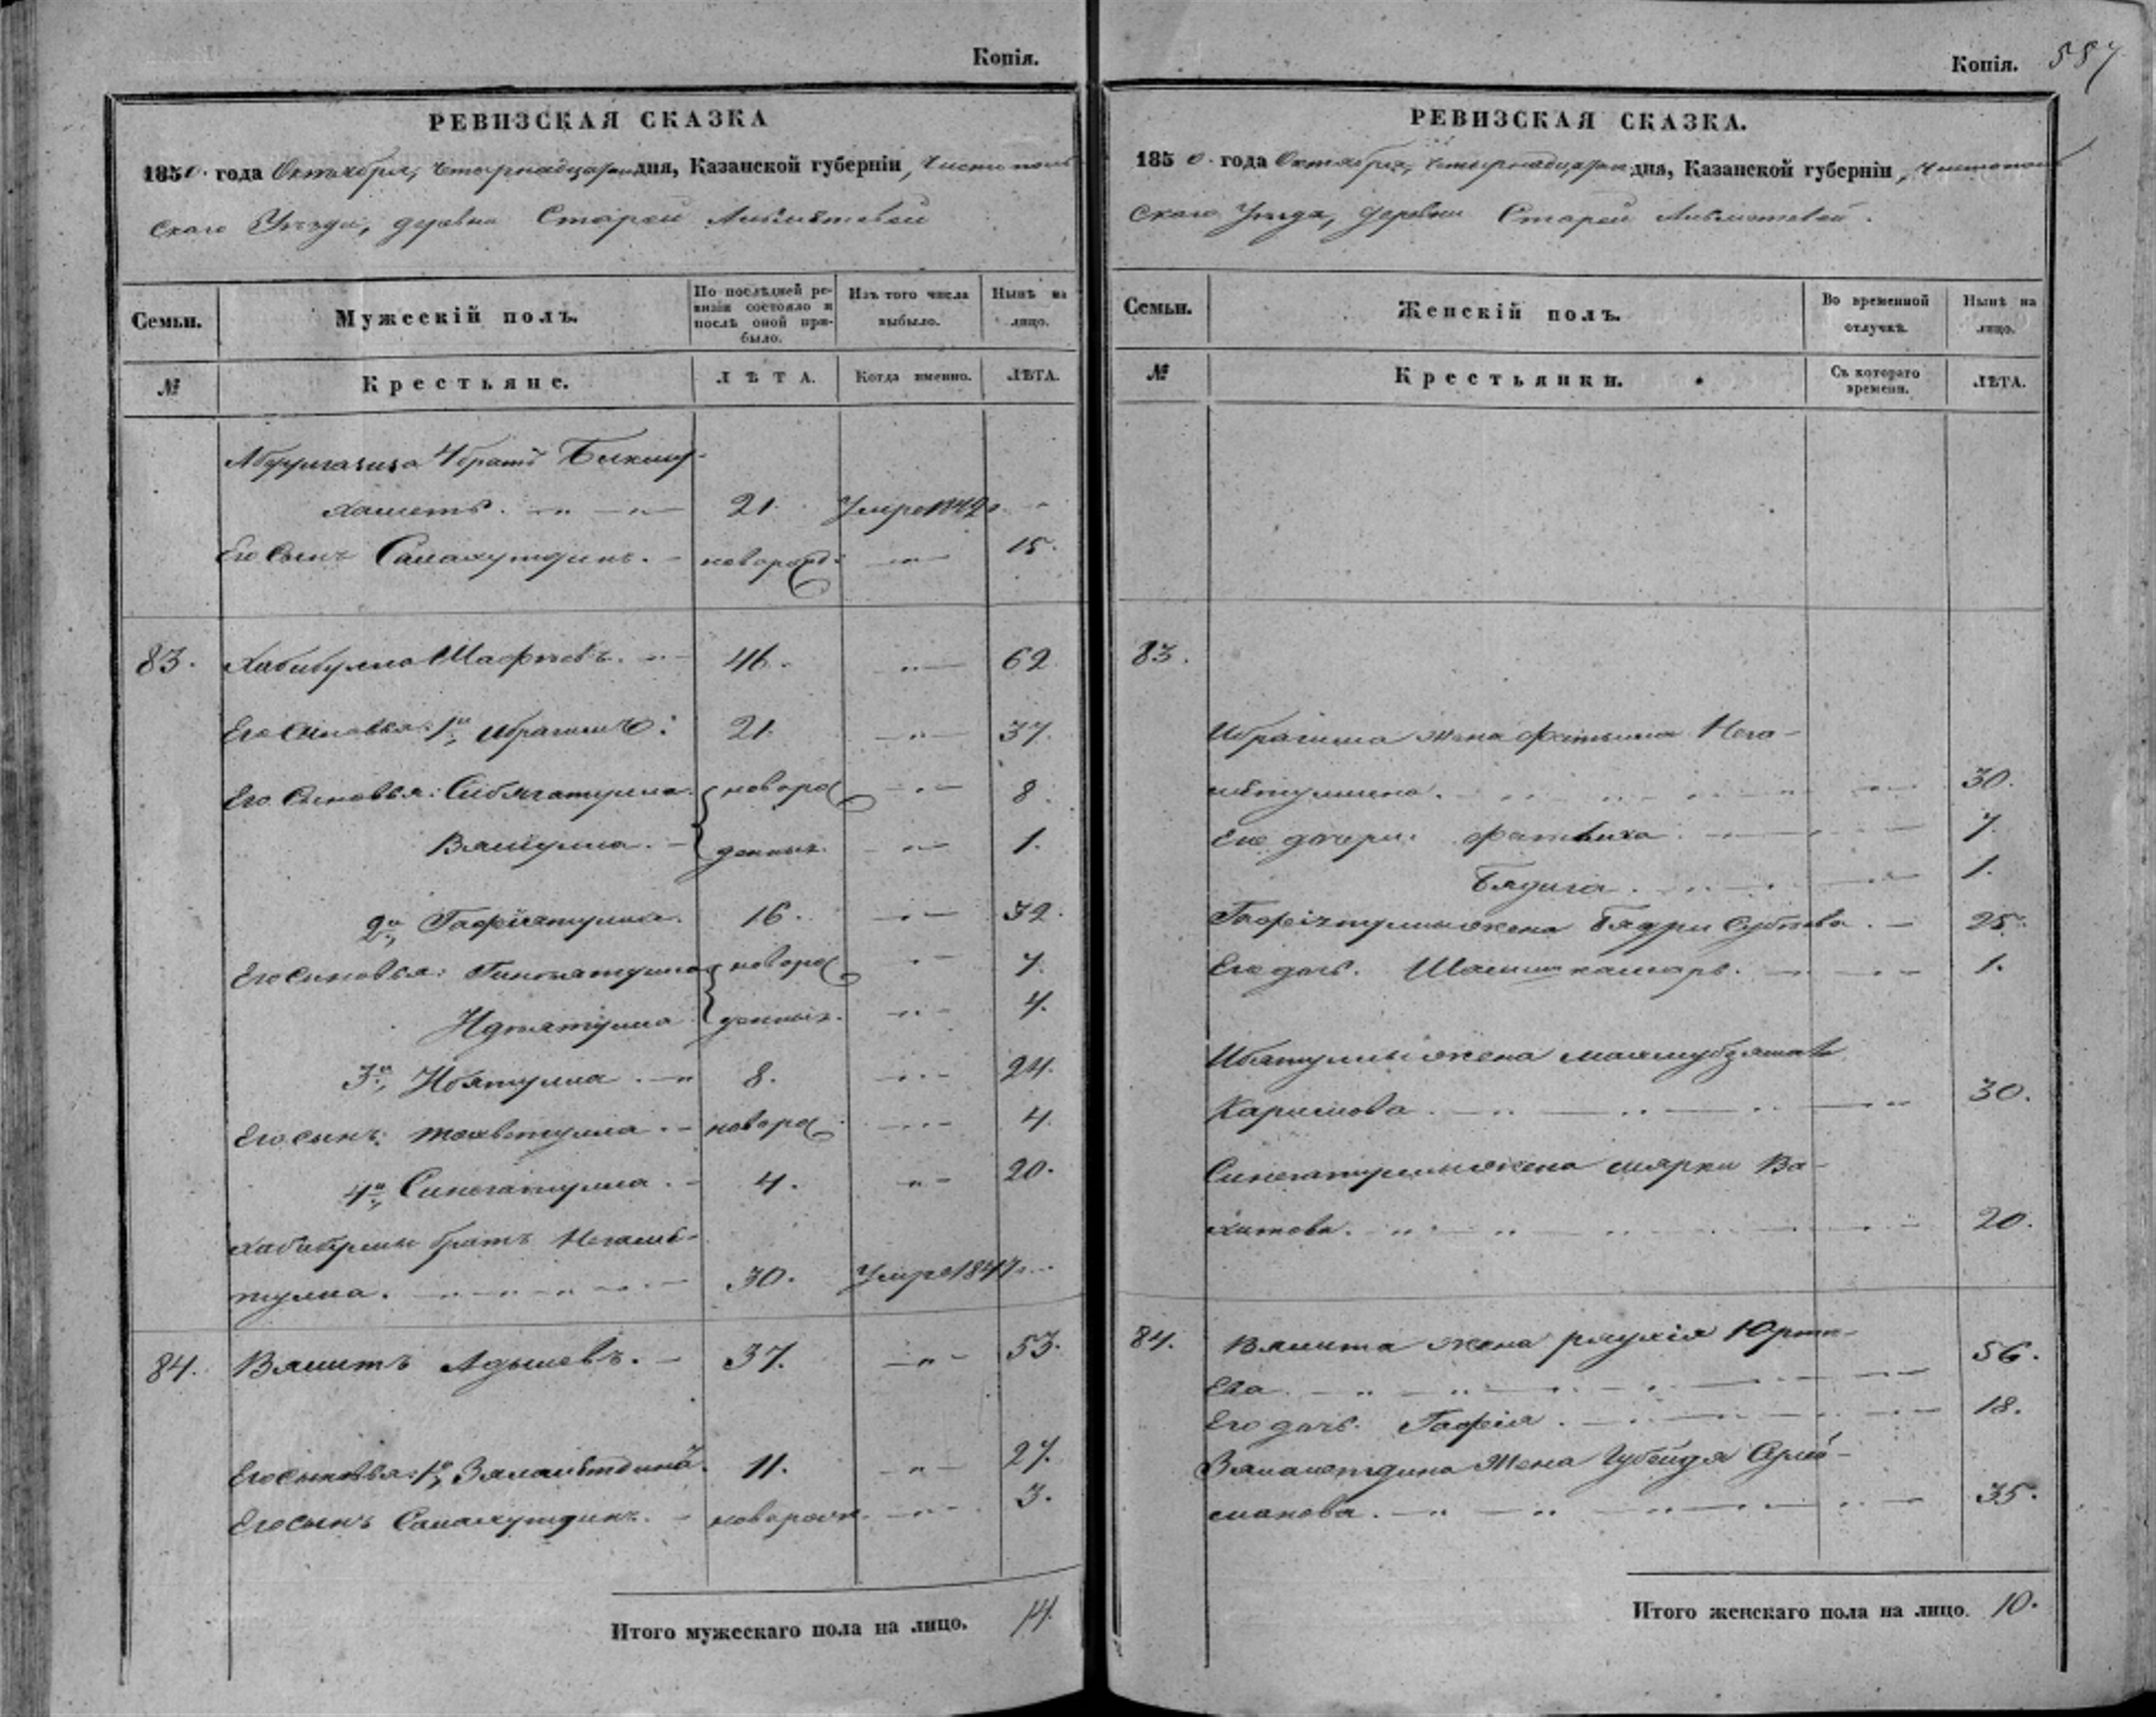 Копія.
РЕВИЗСКАЯ СКАЗКА
1850. года Октября, четырнадцатаго дня, Казанской губерніи, Чистополь
скаго Уѣзда, деревни Старой
Семьи.
Мужескій полъ.
По послѣдней ре-
визіи состояло и
послѣ оной при-
было.
Изъ того числа
выбыло.
Нынѣ на
лицо.
№
Крестьяне.
ЛѢТА.
Когда именно.
ЛѢТА.
4 братъ Бикму-
хаметъ. 21. Умре 1842
Его Сынъ Салахутдинъ. новорожд: 15.
83. Хабибулла Шафѣевъ. 46. 62
Его Сыновья: 1й, Ибрагимъ: 21. 37.
Его Сыновья: Сибагатулла новоро 8.
Валиулла. жденных. 1.
2й, Гафіятулла. 16. 32.
Его сыновья: новоро 7.
жденных. 4.
3й, Ибятулла. 8. 24.
Его сынъ: новорож 4.
4й, 4. 20.
Хабибуллы братъ Негаме-
тулла. 30. Умре 1847
84. Вялитъ Адышевъ. 37. 53.
Его сыновья: 1й, Зямалетдинъ. 11. 27.
Его сынъ Салахутдинъ. новорож. 3.
Итого мужескаго пола на лицо. 14.
Копія. 587
РЕВИЗСКАЯ СКАЗКА.
1850. года Октября, четырнадцатаго дня, Казанской губерніи, Чистополь
скаго Уѣзда, деревни Старой
Семьи.
Женскій полъ.
Во временной
отлучкѣ.
Нынѣ на
лицо.
№
Крестьянки.
Съ котораго
времени.
ЛѢТА.
83.
Ибрагима жена Фатьима Нега-
метуллина. 30.
Его дочери: Фатьиха. 7.
Бядига. 1.
Гафіятуллы жена Бядри 25.
Его дочь. Шамшикамаръ. 1.
Ибятуллы жена
Каримова. 30.
жена Ва-
хитова. 20.
84. Вялита жена
ева. 56.
Его дочь. Гафія. 18.
Зямалетдина жена Губейдя
манова. 35.
Итого женскаго пола на лицо. 10.